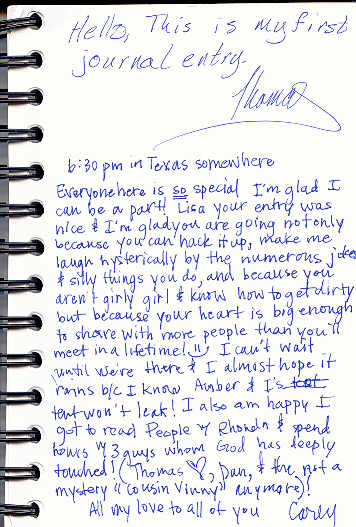 Hello, This is my first
journal entry.
Thomas
6:30 pm in Texas somewhere
Everyone here is so special I'm glad I
can be a part! Lisa your entry was
nice & I'm glad you are going not only
because you can hack it up, make me
laugh hysterically by the numerous jokes
& silly things you do, and because you
aren't girly girl & know how to get dirty
but because your heart is big enough
to share with more people than you'll
meet in a lifetime! I can't wait
until we're there & I almost hope it
rains b/c I know Amber & I's tent
tent won't leak! I also am happy I
got to read People w/ Rhonda & spend
hours w/ 3 guys whom God has deeply
touched! (Thomas, Dan, & the not a
mystery "cousin Vinny" anymore)!
All my love to all of you Carey